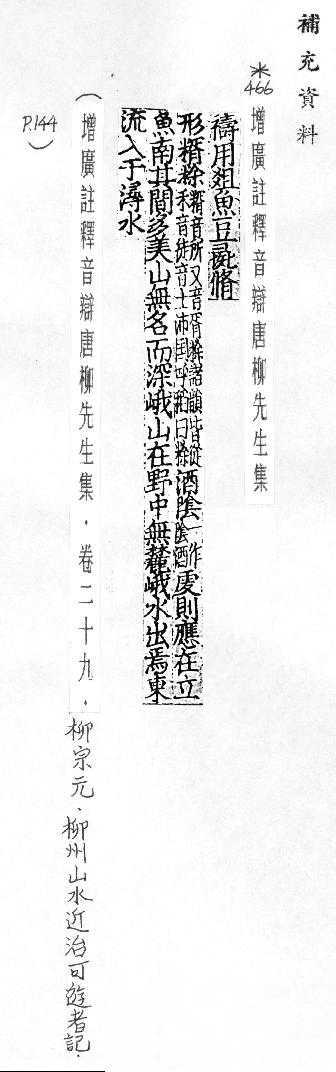 補充資料
※466
增廣註釋音辯唐柳先生集
禱用俎魚豆彘脩
形糈稌糈音所又音胥稌諸韻皆從禾音徒音土沛国呼稻曰稌酒陰一作陰酒虔則應在立
魚南其間多美山無名而深峨山在野中無麓峨水出焉東
流入于潯水
（增廣註釋音辯唐柳先生集．卷二十九．柳宗元．柳州山水近治可遊者記．
P.144）